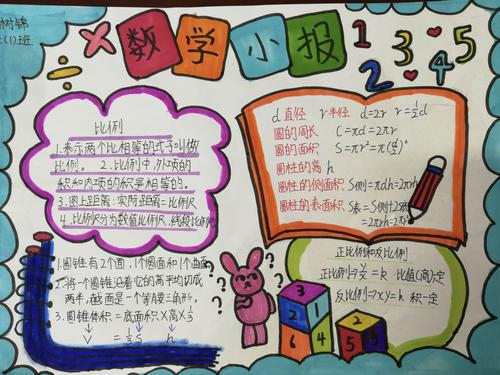 树锦
(1)班
数学小报
1 2 3 4 5
比例
1.表示两个比相等的式子叫做
比例。2.比例中,外项的
积和内项的积是相等的。
3.图上距离:实际距离=比例尺
4.比例尺分为数值比例尺,线段比例尺
d直径 r半径 d=2r r=½d
圆的周长 C=πd=2πr
圆的面积 S=πr²=π(d/2)²
圆柱的高h
圆柱的侧面积 S侧=πdh=2πrh
圆柱的表面积 S表=S侧+2S
=2πrh=2πr²
1.圆锥有2个面,1个圆面和1个曲面
2.将一个圆锥沿着它的高平均切成
两半,截面是一个等腰三角形。
3.圆锥体积=底面积×高×⅓
V = ⅓ S h
? ? ? ?
3
2 1
6 4 5 2
正比例和反比例
正比例→y/x=k 比值(商)一定
反比例→xy=k 积一定